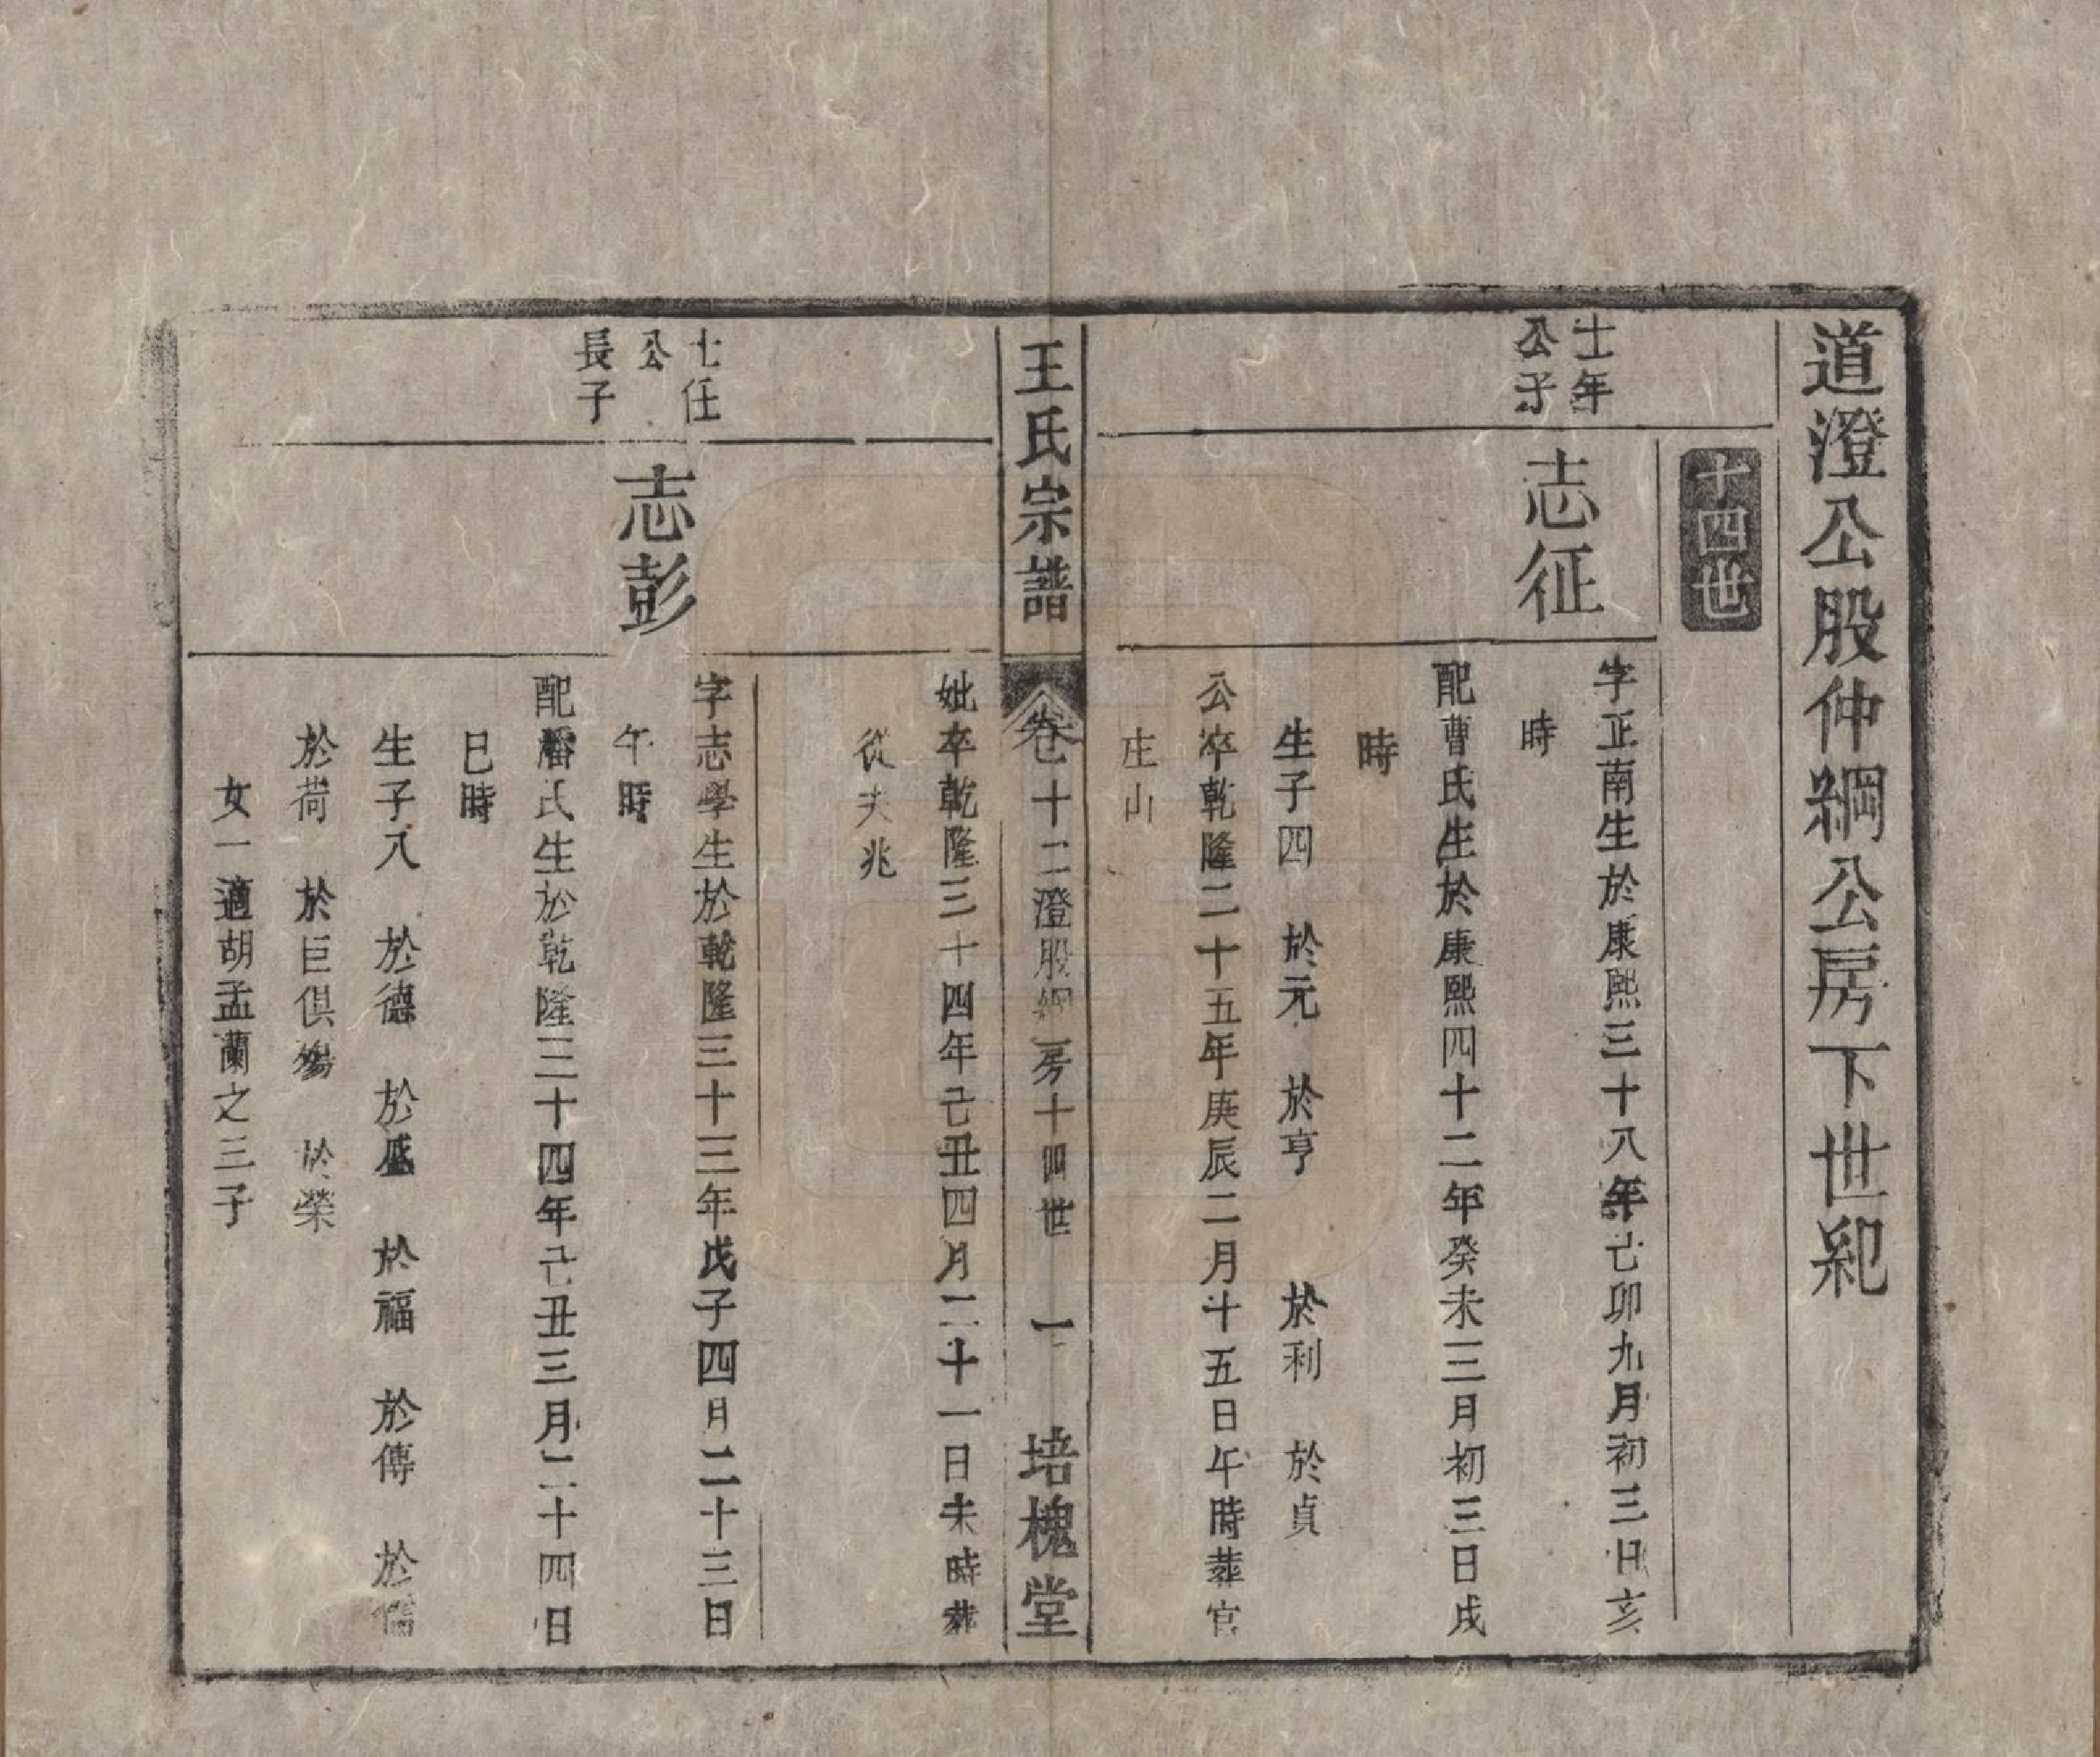 道澄公股仲綱公房下世紀
十四世
士年
公子
志征
字正南生於康熙三十八年己卯九月初三日亥
時
配曹氏生於康熙四十二年癸未三月初三日戌
時
生子四 於元 於亨 於利 於貞
公卒乾隆二十五年庚辰二月十五日午時葬官
庄山
王氏宗譜 卷十二澄股綱房十四世 一 培槐堂
妣卒乾隆三十四年己丑四月二十一日未時葬
從夫兆
士任
公
長子
志彭
字志學生於乾隆三十三年戊子四月二十三日
午時
配潘氏生於乾隆三十四年己丑三月二十四日
巳時
生子八 於德 於盛 於福 於傳 於
於荷 於巨俱殤 於榮
女一適胡孟蘭之三子